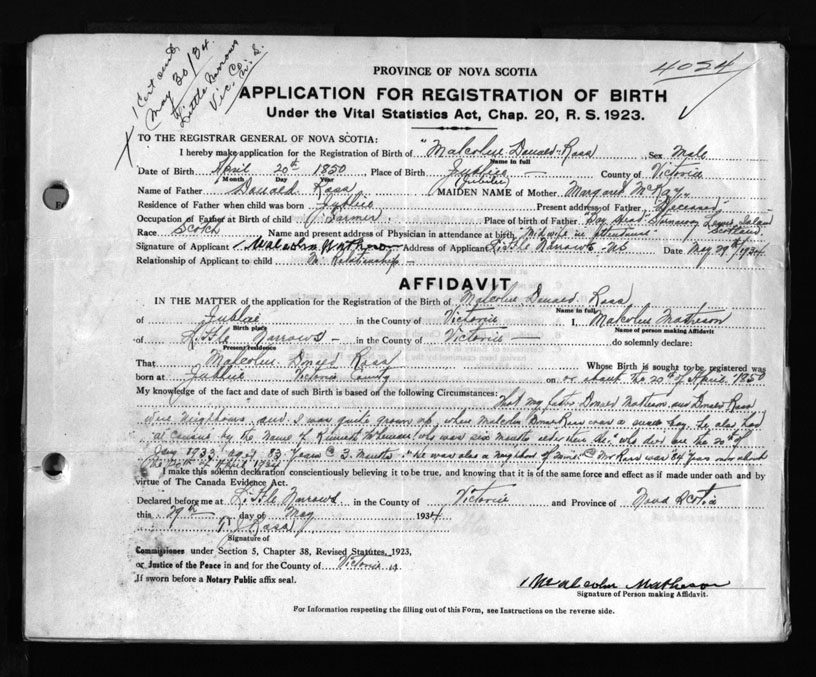 1 Cert sent
May 30/34.
to
Little Narrows
Vic. Co. N.S.
4024
PROVINCE OF NOVA SCOTIA
APPLICATION FOR REGISTRATION OF BIRTH
Under the Vital Statistics Act, Chap. 20, R. S. 1923.
X TO THE REGISTRAR GENERAL OF NOVA SCOTIA:
I hereby make application for the Registration of Birth of "Malcolm Donald Ross Sex Male
Name in full
Date of Birth April 20th 1850 Place of Birth Jubilee County of Victoria
Month Day Year
Name of Father Donald Ross MAIDEN NAME of Mother Margaret McKay
Residence of Father when child was born Jubilee Present address of Father Deceased
Occupation of Father at Birth of child Farmer Place of Birth of Father Lewis Island
Scotland
Race Scotch Name and present address of Physician in attendance at birth Midwife in attendance
Signature of Applicant Malcolm Matheson Address of Applicant Little Narrows, NS Date May 29th, 1934
Relationship of Applicant to child No Relationship
AFFIDAVIT
IN THE MATTER of the application for the Registration of the Birth of Malcolm Donald Ross
Name in full
of Jubilee in the County of Victoria I, Malcolm Matheson
Birth place Name of person making Affidavit
of Little Narrows in the County of Victoria do solemnly declare:
Present residence
That Malcolm Donald Ross Whose Birth is sought to be registered was
born at Jubilee Victoria County on or about the 20th of April 1850
My knowledge of the fact and date of such Birth is based on the following Circumstances:
That my father Donald Matheson and Donald Ross
were neighbours, and I was quite grown up, when Malcolm Ross was a small boy. He also had
a cousin by the name of Kenneth who was six months older than he, who died on the 20th of
Jany 1933, aged 83 years & 3 months. He was also a neighbour of mine. Mr Ross was 84 years old about
the 20th of April 1934
I make this solemn declaration conscientiously believing it to be true, and knowing that it is of the same force and effect as if made under oath and by
virtue of The Canada Evidence Act.
Declared before me at Little Narrows in the County of Victoria and Province of Nova Scotia
this 29th day of May 1934
Ross
Signature of
Commissioner under Section 5, Chapter 38, Revised Statutes, 1923,
or Justice of the Peace in and for the County of Victoria
If sworn before a Notary Public affix seal.
Malcolm Matheson
Signature of Person making Affidavit.
For Information respecting the filling out of this Form, see Instructions on the reverse side.